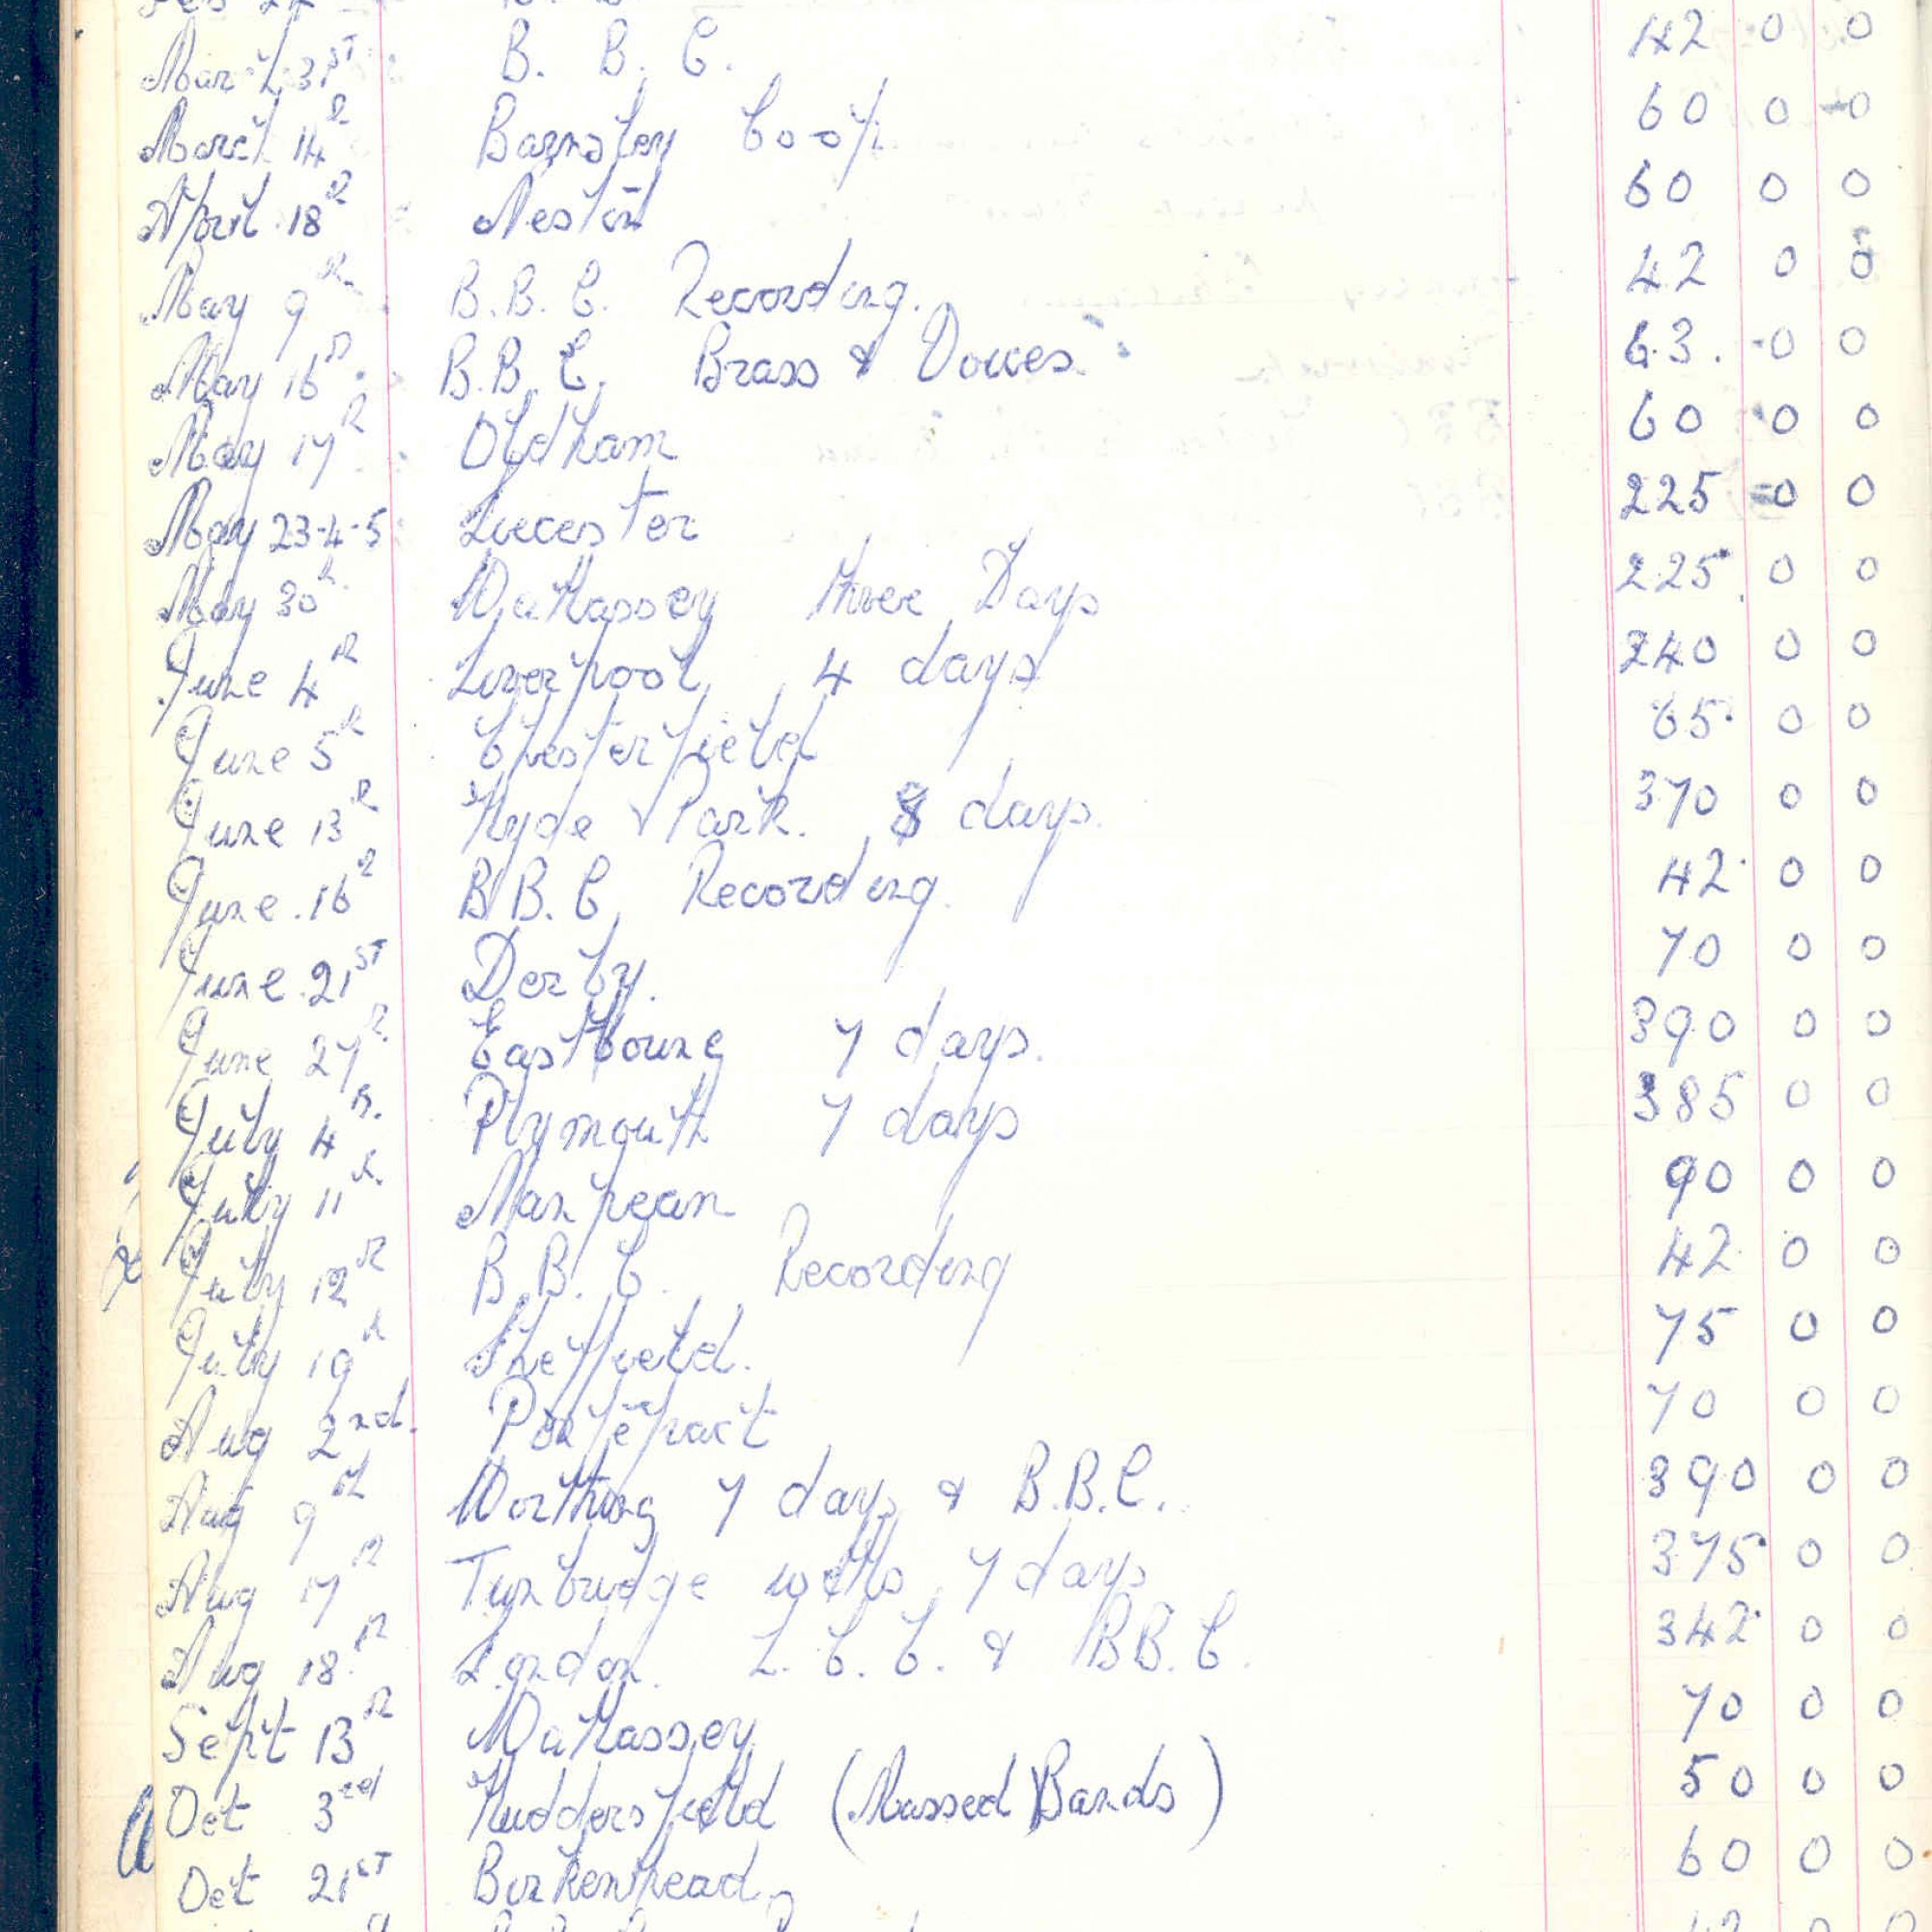 March 31ST B. B. C. 42 0 0
March 14th Barnsley Coop 60 0 0
April 18th Neston 60 0 0
May 9th B.B.C. Recording. 42 0 0
May 16th B.B.C. Brass & Voices 63. 0 0
May 17th Oldham 60 0 0
May 23-4-5 Liecester 225 0 0
May 30th Wallassey three Days 225 0 0
June 4th Liverpool 4 days 240 0 0
June 5th Chesterfield 65 0 0
June 13th Hyde Park. 8 days. 370 0 0
June 16th B.B.C. Recording. 42 0 0
June 21ST Derby. 70 0 0
June 27th Eastbourne 7 days. 390 0 0
July 4th Plymouth 7 days 385 0 0
July 11th Nanpean 90 0 0
July 12th B.B.C. Recording 42 0 0
July 19th Sheffield. 75 0 0
Aug 2nd. Pontefract 70 0 0
Aug 9th Worthing 7 days & B.B.C. 390 0 0
Aug 17th Tunbridge wells 7 days 375 0 0
Aug 18th London. L.C.C. & B.B.C. 342 0 0
Sept 13th Wallassey 70 0 0
Oct 3rd Huddersfield (Massed Bands) 50 0 0
Oct 21ST Birkenhead 60 0 0